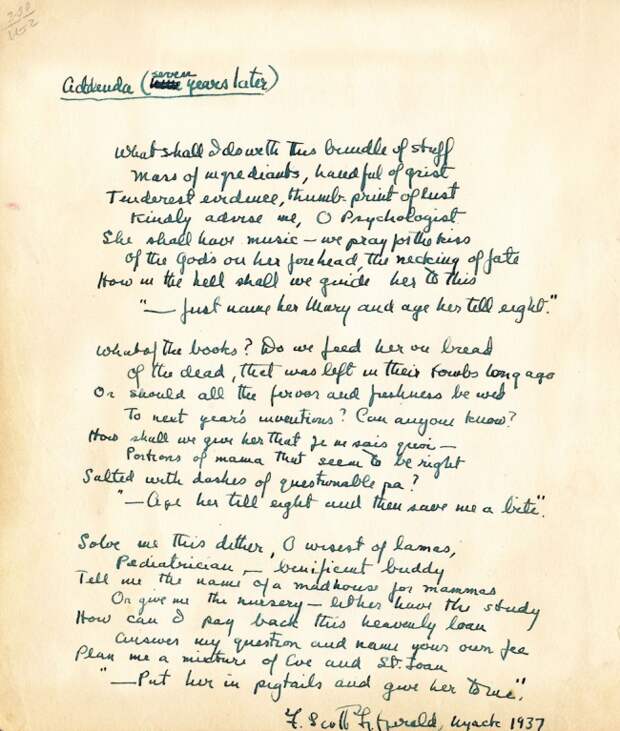 Addenda (seven years later)
What shall I do with this bundle of stuff
Mass of ingredients, handful of grist
Tenderest evidence, thumb-print of lust
Kindly advise me, O Psychologist
She shall have music — we pray for the kiss
Of the God's on her forehead, the necking of fate
How in the hell shall we guide her to this
"— Just name her Mary and age her till eight."
What of the books? Do we feed her on bread
Of the dead, that was left in their tombs long ago
Or should all the fervor and freshness be wed
To next year's inventions? Can anyone know?
How shall we give her that je ne sais quoi —
Portions of mama that seem to be right
Salted with dashes of questionable pa?
"— Age her till eight and then save me a bite".
Solve me this dither, O wisest of lamas,
Pediatrician, — beneficent buddy
Tell me the name of a madhouse for mammas
Or give me the nursery — let her have the study
How can I pay back this heavenly loan
Answer my question and name your own fee
Plan me a mixture of Eve and St. Joan
"— Put her in pigtails and give her to me".
F. Scott Fitzgerald, Nyack 1937